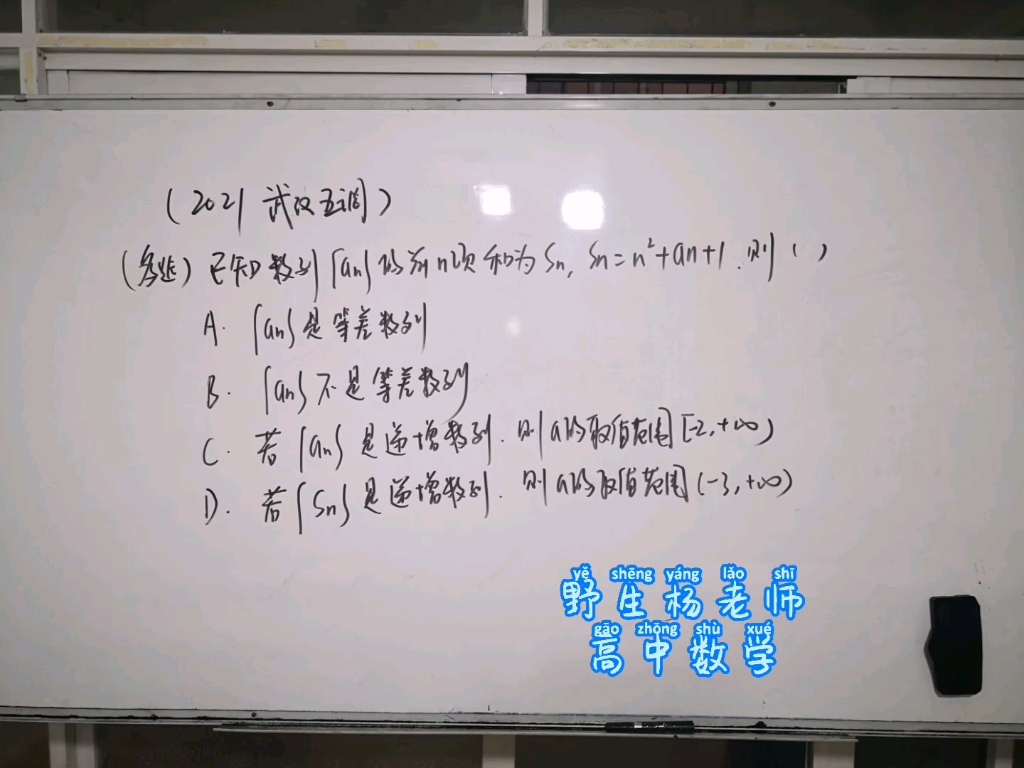 (2021 武汉五调)
(多选) 已知数列{an}的前n项和为Sn, Sn=n²+an+1.则( )
A. {an}是等差数列
B. {an}不是等差数列
C. 若{an}是递增数列.则a的取值范围[-2,+∞)
D. 若{Sn}是递增数列.则a的取值范围(-3,+∞)
yě shēng yáng lǎo shī
野生杨老师
gāo zhōng shù xué
高中数学